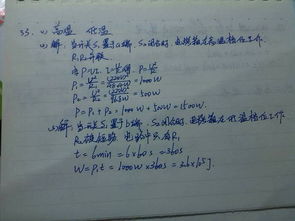 33. (1) 高温 低温
(2) 解:当开关S₁置于a端,S₂闭合时,电熨斗在高温档位工作.
R₁,R₂并联
由P=UI, I=U/R得: P=U²/R
P₁=U²/R₁=(220V)²/48.4Ω=1000W
P₂=U²/R₂=(220V)²/96.8Ω=500W
P=P₁+P₂=1000W+500W=1500W.
(3)解:当开关S₁置于b端,S₂闭合时,电熨斗在低温档位工作.
R₂被短路 电路中只有R₁
t=6min=6×60s=360s
W=P₁t=1000W×360s=3.6×10⁵J.